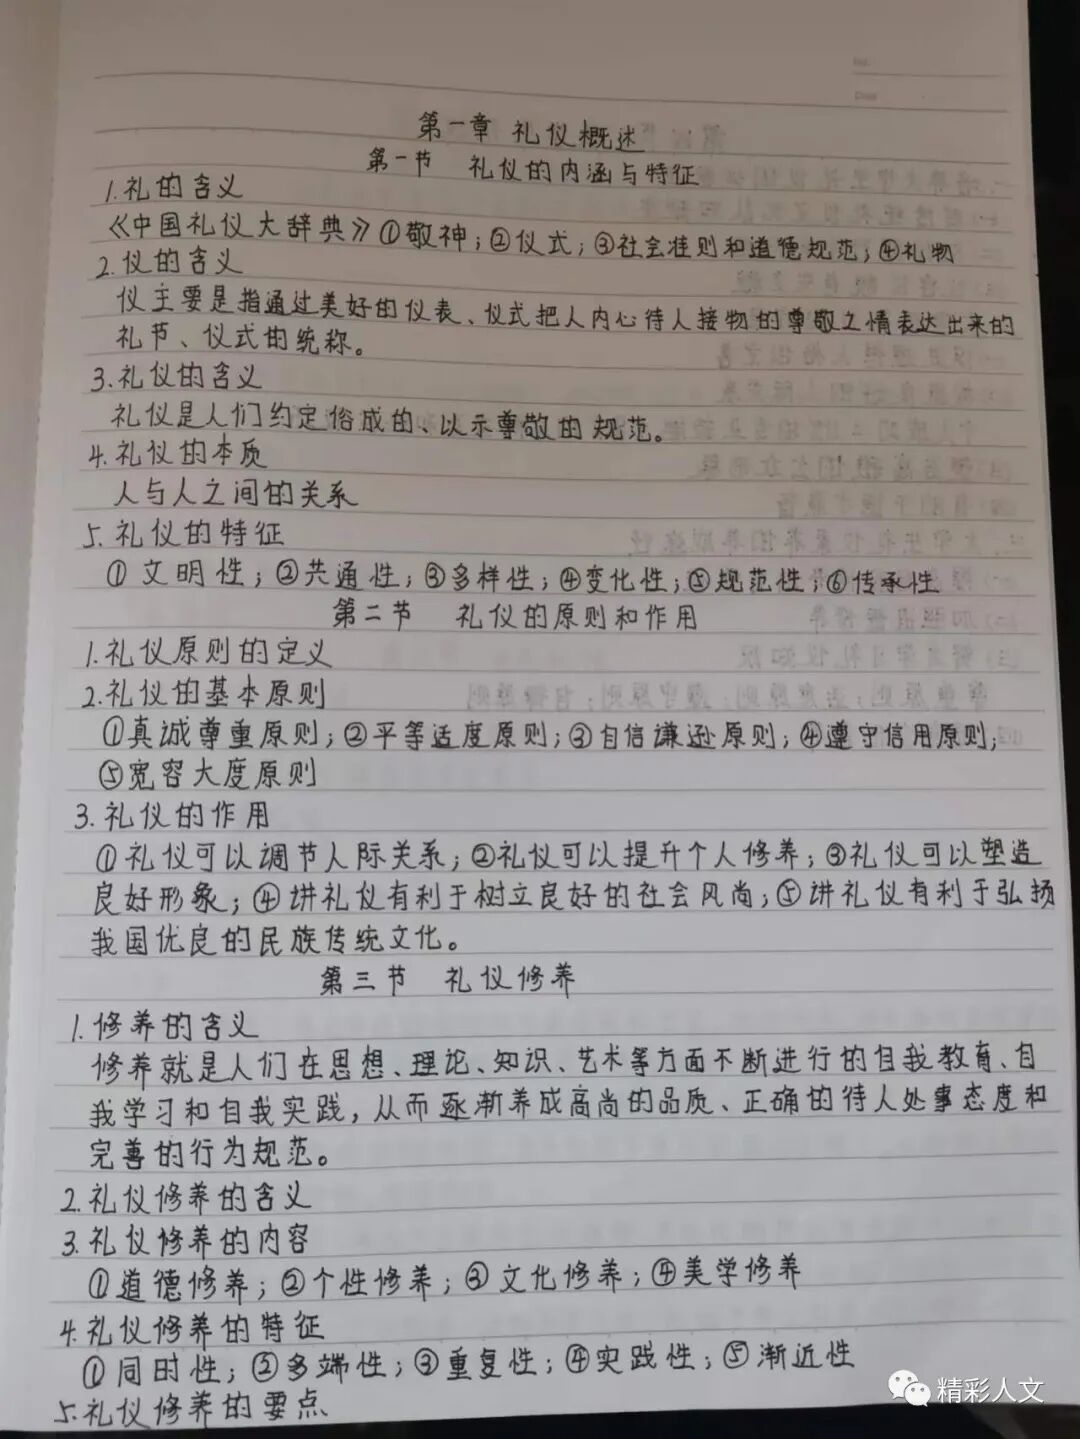 No.
Date
第一章 礼仪概述
第一节 礼仪的内涵与特征
1.礼的含义
《中国礼仪大辞典》①敬神;②仪式;③社会准则和道德规范;④礼物
2.仪的含义
仪主要是指通过美好的仪表、仪式把人内心待人接物的尊敬之情表达出来的
礼节、仪式的统称。
3.礼仪的含义
礼仪是人们约定俗成的、以示尊敬的规范。
4.礼仪的本质
人与人之间的关系
5.礼仪的特征
①文明性;②共通性;③多样性;④变化性;⑤规范性;⑥传承性
第二节 礼仪的原则和作用
1.礼仪原则的定义
2.礼仪的基本原则
①真诚尊重原则;②平等适度原则;③自信谦逊原则;④遵守信用原则;
⑤宽容大度原则
3.礼仪的作用
①礼仪可以调节人际关系;②礼仪可以提升个人修养;③礼仪可以塑造
良好形象;④讲礼仪有利于树立良好的社会风尚;⑤讲礼仪有利于弘扬
我国优良的民族传统文化。
第三节 礼仪修养
1.修养的含义
修养就是人们在思想、理论、知识、艺术等方面不断进行的自我教育、自
我学习和自我实践,从而逐渐养成高尚的品质、正确的待人处事态度和
完善的行为规范。
2.礼仪修养的含义
3.礼仪修养的内容
①道德修养;②个性修养;③文化修养;④美学修养
4.礼仪修养的特征
①同时性;②多端性;③重复性;④实践性;⑤渐近性
5.礼仪修养的要点
精彩人文